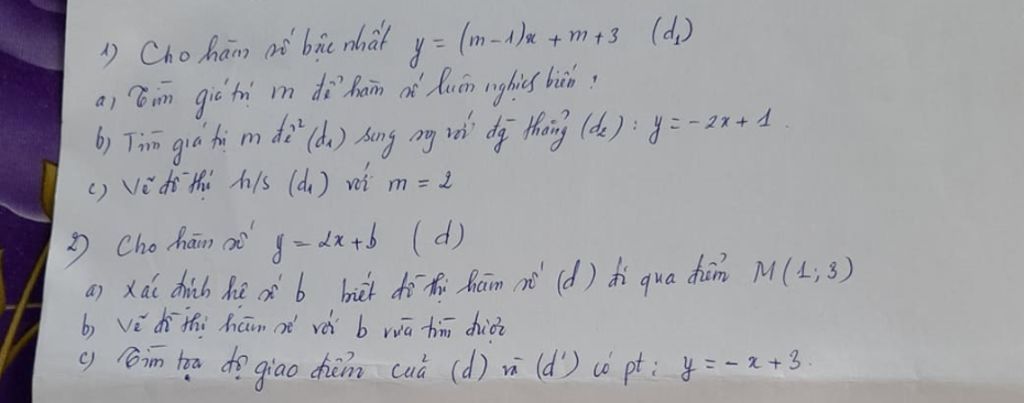 1) Cho hàm số bậc nhất y = (m-1)x + m + 3 (d₁)
a) Tìm giá trị m để hàm số luôn nghịch biến?
b) Tìm giá trị m để (d₁) song sg với đg thẳng (d₂): y = -2x + 1.
c) Vẽ đồ thị h/s (d₁) với m = 2
2) Cho hàm số y = 2x + b (d)
a) Xác định hệ số b biết đồ thị hàm số (d) đi qua điểm M(1; 3)
b) Vẽ đồ thị hàm số với b vừa tìm được
c) Tìm tọa độ giao điểm của (d) và (d') có pt: y = -x + 3.